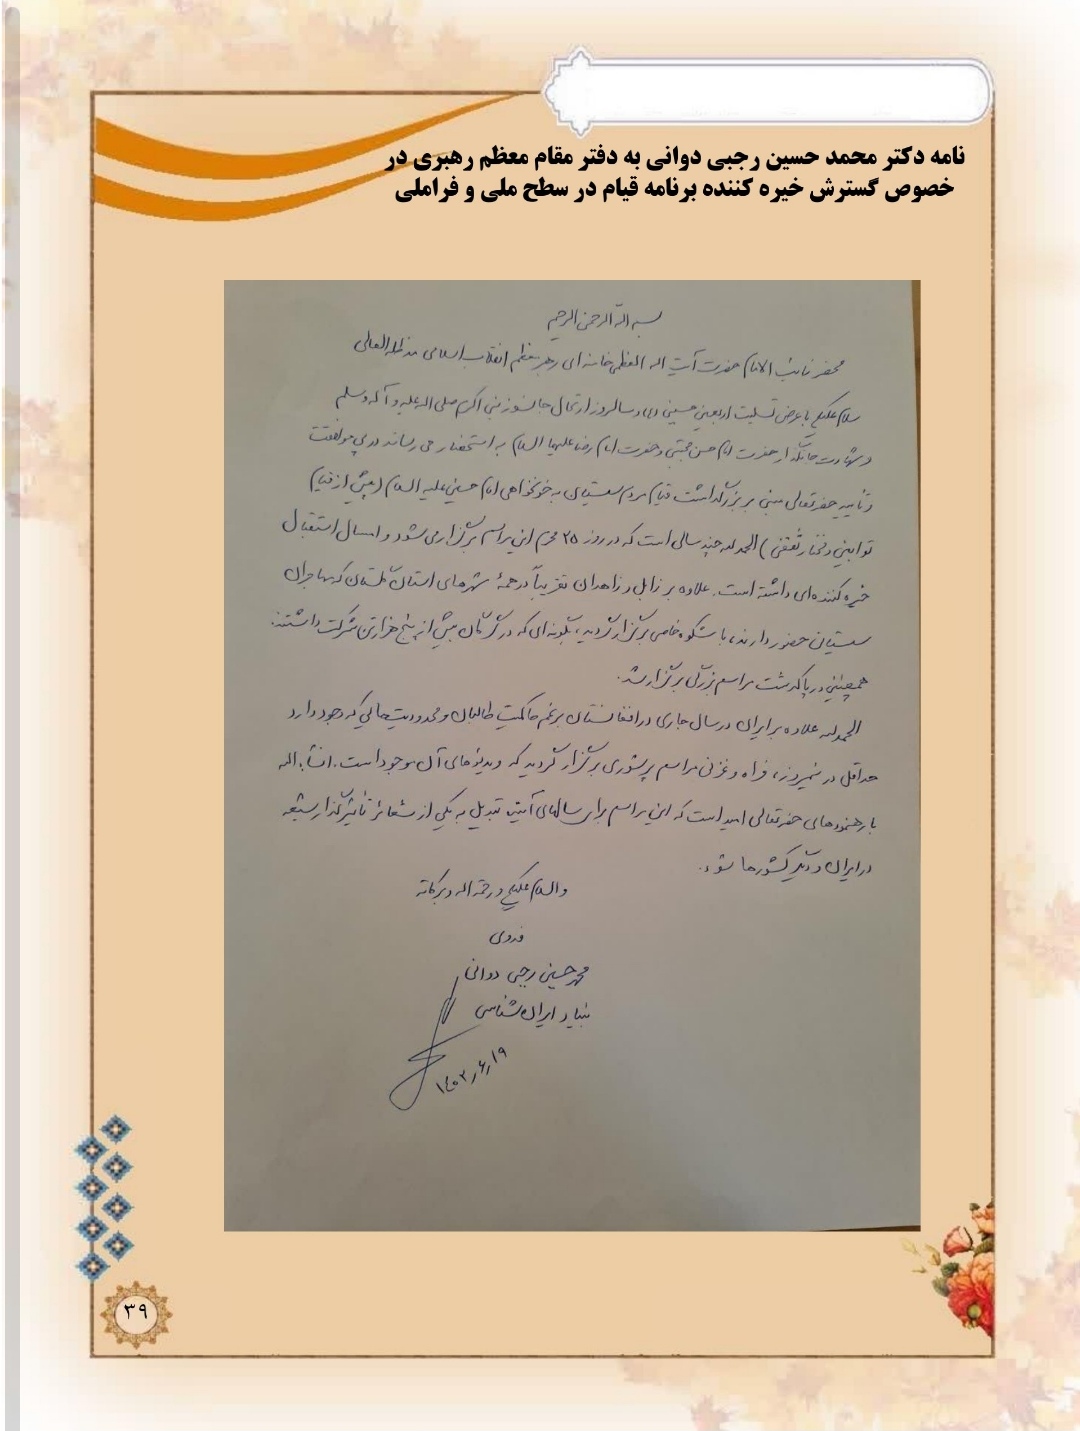 نامه دکتر محمد حسین رجبی دوانی به دفتر مقام معظم رهبری در
خصوص گسترش خیره کننده برنامه قیام در سطح ملی و فراملی
بسم الله الرحمن الرحیم
محضر نائب الامام حضرت آیت اله العظمی خامنه ای رهبر معظم انقلاب اسلامی مد ظله العالی
سلام علیکم با عرض تسلیت اربعین حسینی و سالروز ارتحال جانسوز نبی اکرم صلی اله علیه و آله وسلم
و شهادت جانگداز حضرت امام حسن مجتبی و حضرت امام رضا علیهما السلام به استحضار می رساند در پی موافقت
و تأیید حضرتعالی مبنی بر بزرگداشت قیام مردم سیستان به خونخواهی امام حسین علیه السلام (پیش از قیام
توابین و مختار ثقفی) الحمدلله چند سالی است که در روز ۲۵ محرم این مراسم برگزار می شود و امسال استقبال
خیره کننده ای داشته است. علاوه بر زابل و زاهدان تقریباً در همهٔ شهرهای استان گلستان که مهاجران
سیستانی حضور دارند، با شکوه خاصی برگزار گردید، بگونه ای که در گرگان بیش از پنج هزار تن شرکت داشتند.
همچنین در پاکدشت مراسم بزرگی برگزار شد.
الحمدلله علاوه بر ایران در سال جاری در افغانستان برغم حاکمیت طالبان و محدودیت هایی که وجود دارد
حداقل در نیمروز، فراه و غزنی مراسم پرشوری برگزار گردید که ویدیوهای آن موجود است. انشاءاله
با رهنمودهای حضرتعالی امید است که این مراسم برای سالهای آینده تبدیل به یکی از شعائر تأثیرگذار شیعه
در ایران و دیگر کشورها شود.
والسلام علیکم و رحمة اله و برکاته
فدوی
محمد حسین رجبی دوانی
بنیاد ایران شناسی
۱۴۰۳/۶/۱۹
۳۹